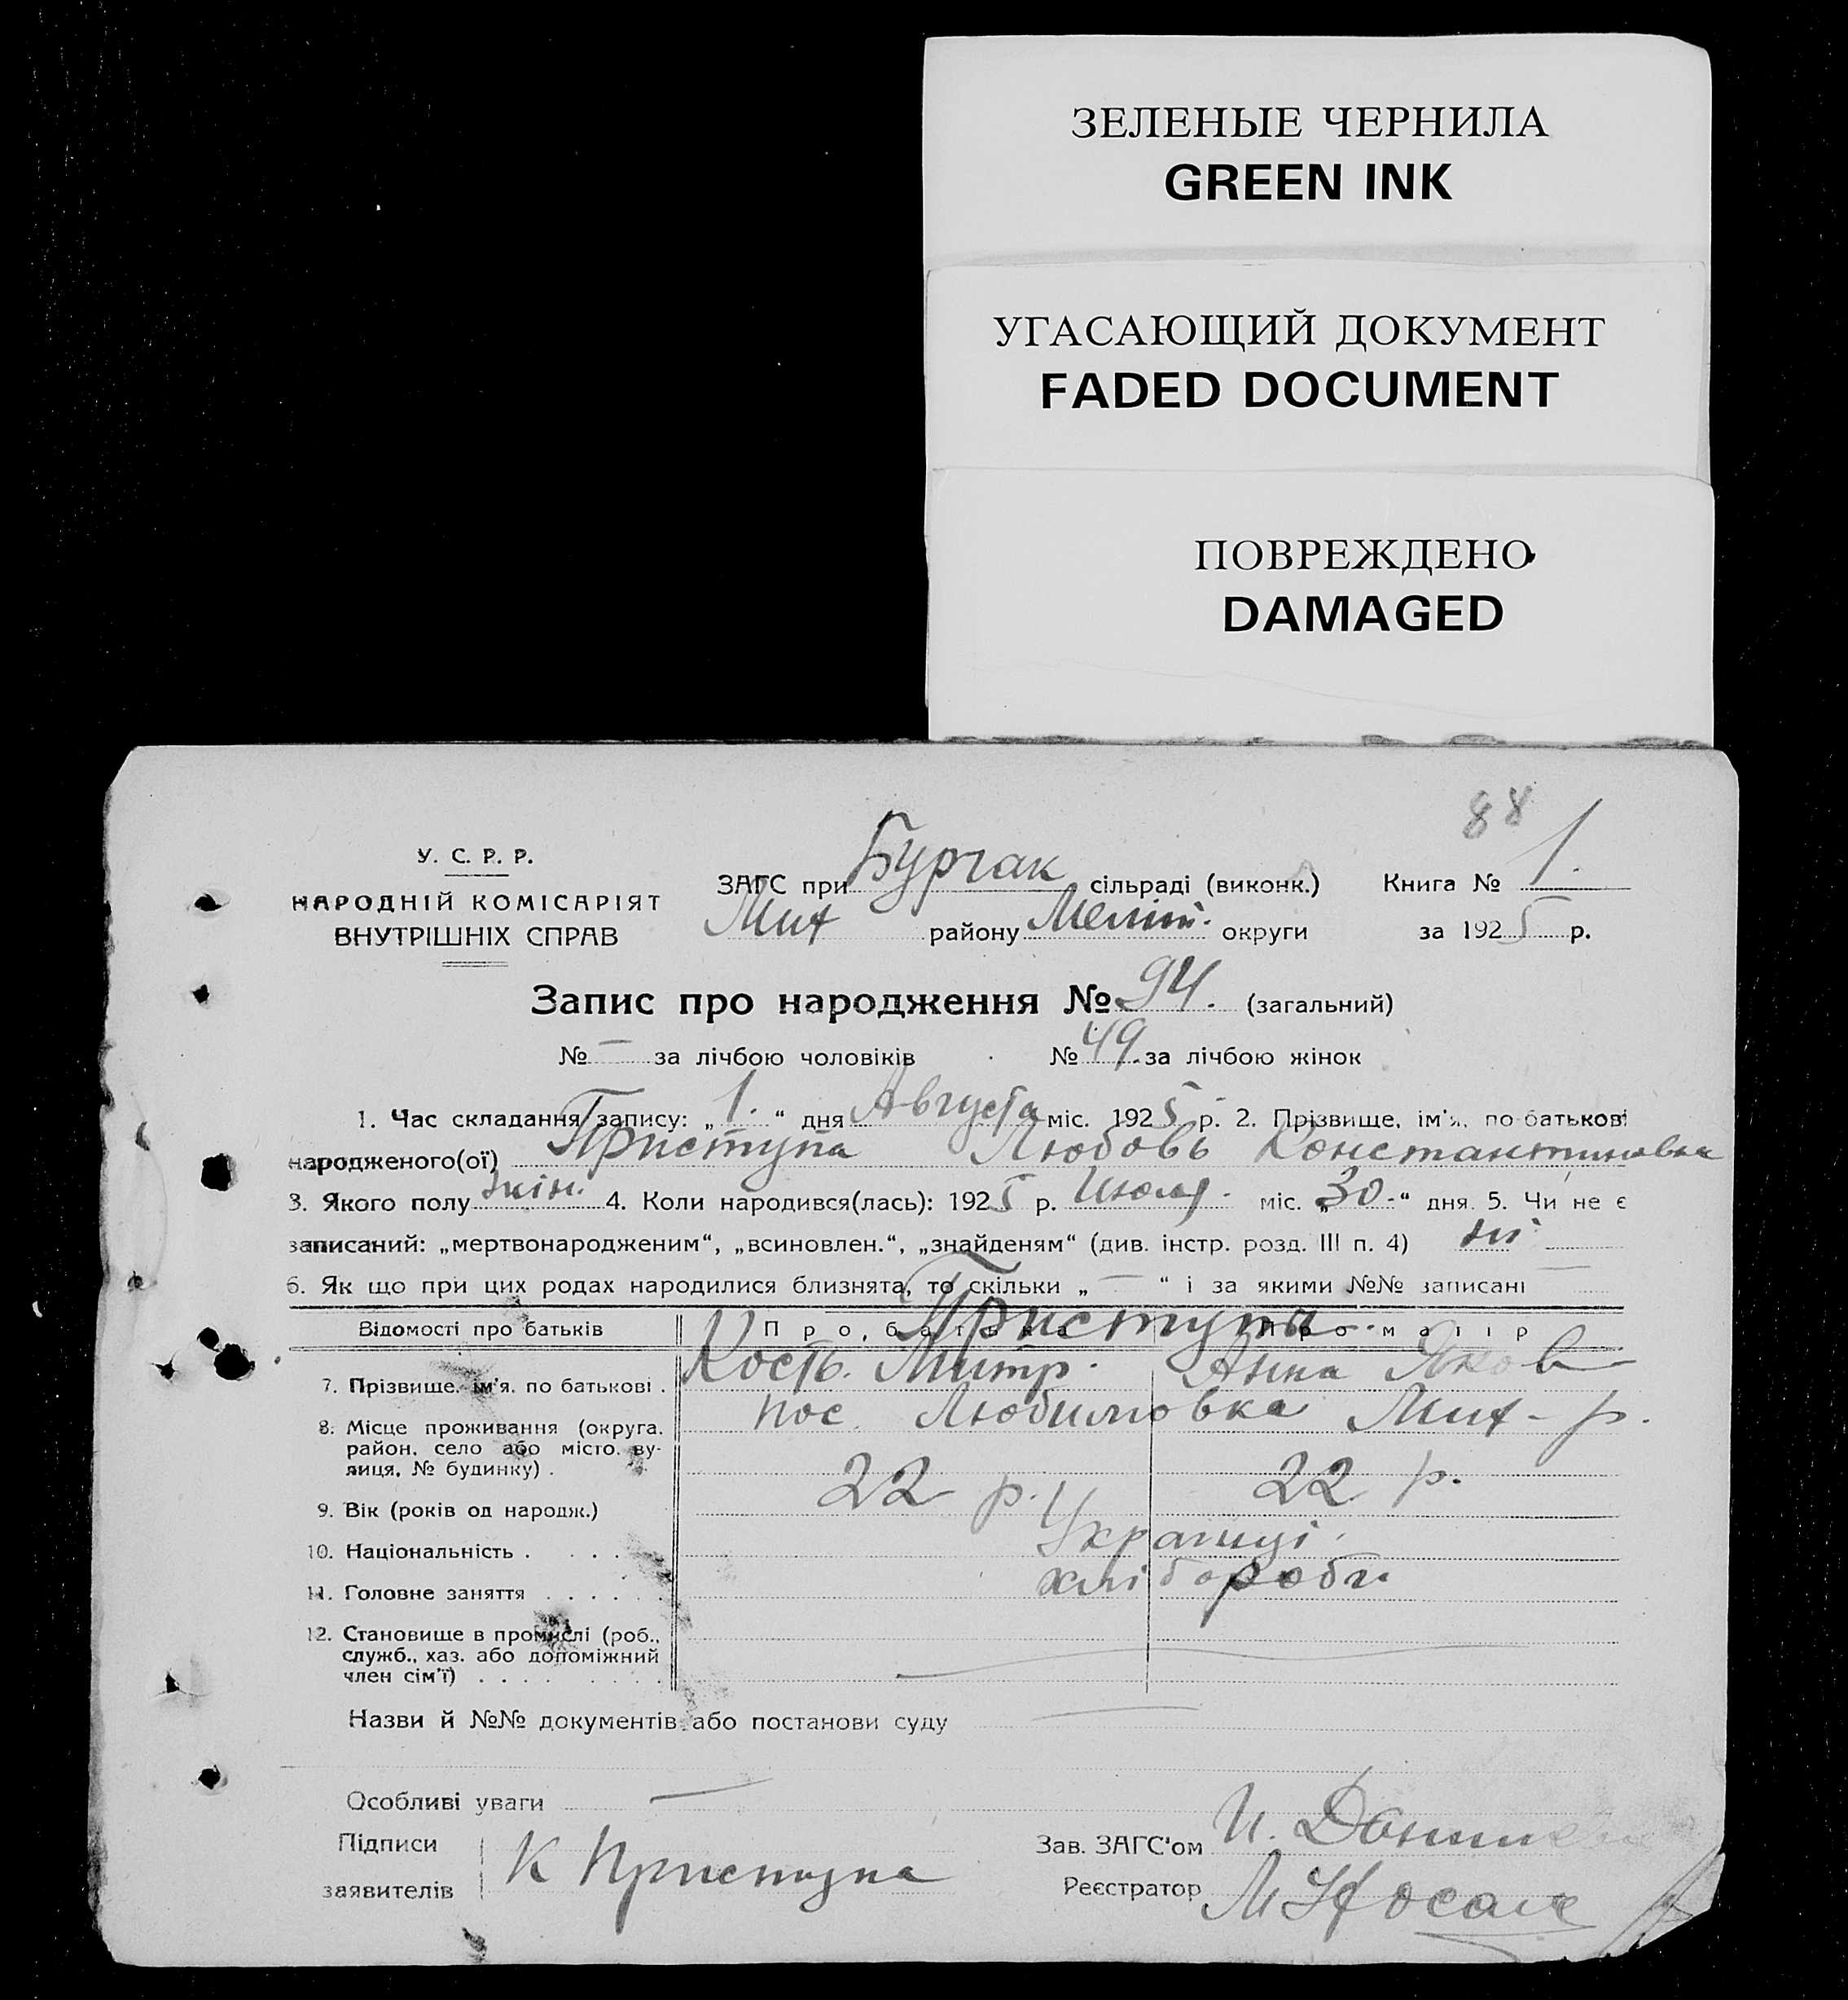 ЗЕЛЕНЫЕ ЧЕРНИЛА
GREEN INK
УГАСАЮЩИЙ ДОКУМЕНТ
FADED DOCUMENT
ПОВРЕЖДЕНО
DAMAGED
88
У. С. Р. Р.
НАРОДНІЙ КОМІСАРІЯТ
ВНУТРІШНІХ СПРАВ
ЗАГС при Бурчак сільраді (виконк.) Книга № 1.
Мих району Меліт. округи за 1925 р.
Запис про народження № 94. (загальний)
№ — за лічбою чоловіків № 49. за лічбою жінок
1. Час складання запису: „ 1. “ дня Августа міс. 1925 р. 2. Прізвище, ім'я, по-батькові
народженого(ої) Приступа Любовь Константиновна
3. Якого полу жін. 4. Коли народився(лась): 1925 р. Июля міс. „ 30 “ дня. 5. Чи не є
записаний: „мертвонародженим“, „всиновлен.“, „знайденям“ (див. інстр. розд. III п. 4) ні
6. Як що при цих родах народилися близнята, то скільки „ — “ і за якими №№ записані —
Відомості про батьків Про батька Про матір
Приступа
7. Прізвище, ім'я, по батькові . Кость. Митр. Анна Яков
8. Місце проживання (округа, район, село або місто, вулиця, № будинку) . пос. Любимовка Мих - р.
9. Вік (років од народж.) 22 р. 22 р.
10. Національність . . . . Українці
11. Головне заняття . . . . . . хлібороби
12. Становище в промислі (роб., служб., хаз. або допоміжний член сім'ї) . . . . . . . . —
Назви й №№ документів або постанови суду —
Особливі уваги —
Підписи заявителів К Приступа
Зав. ЗАГС'ом И.
Реєстратор М Носаль